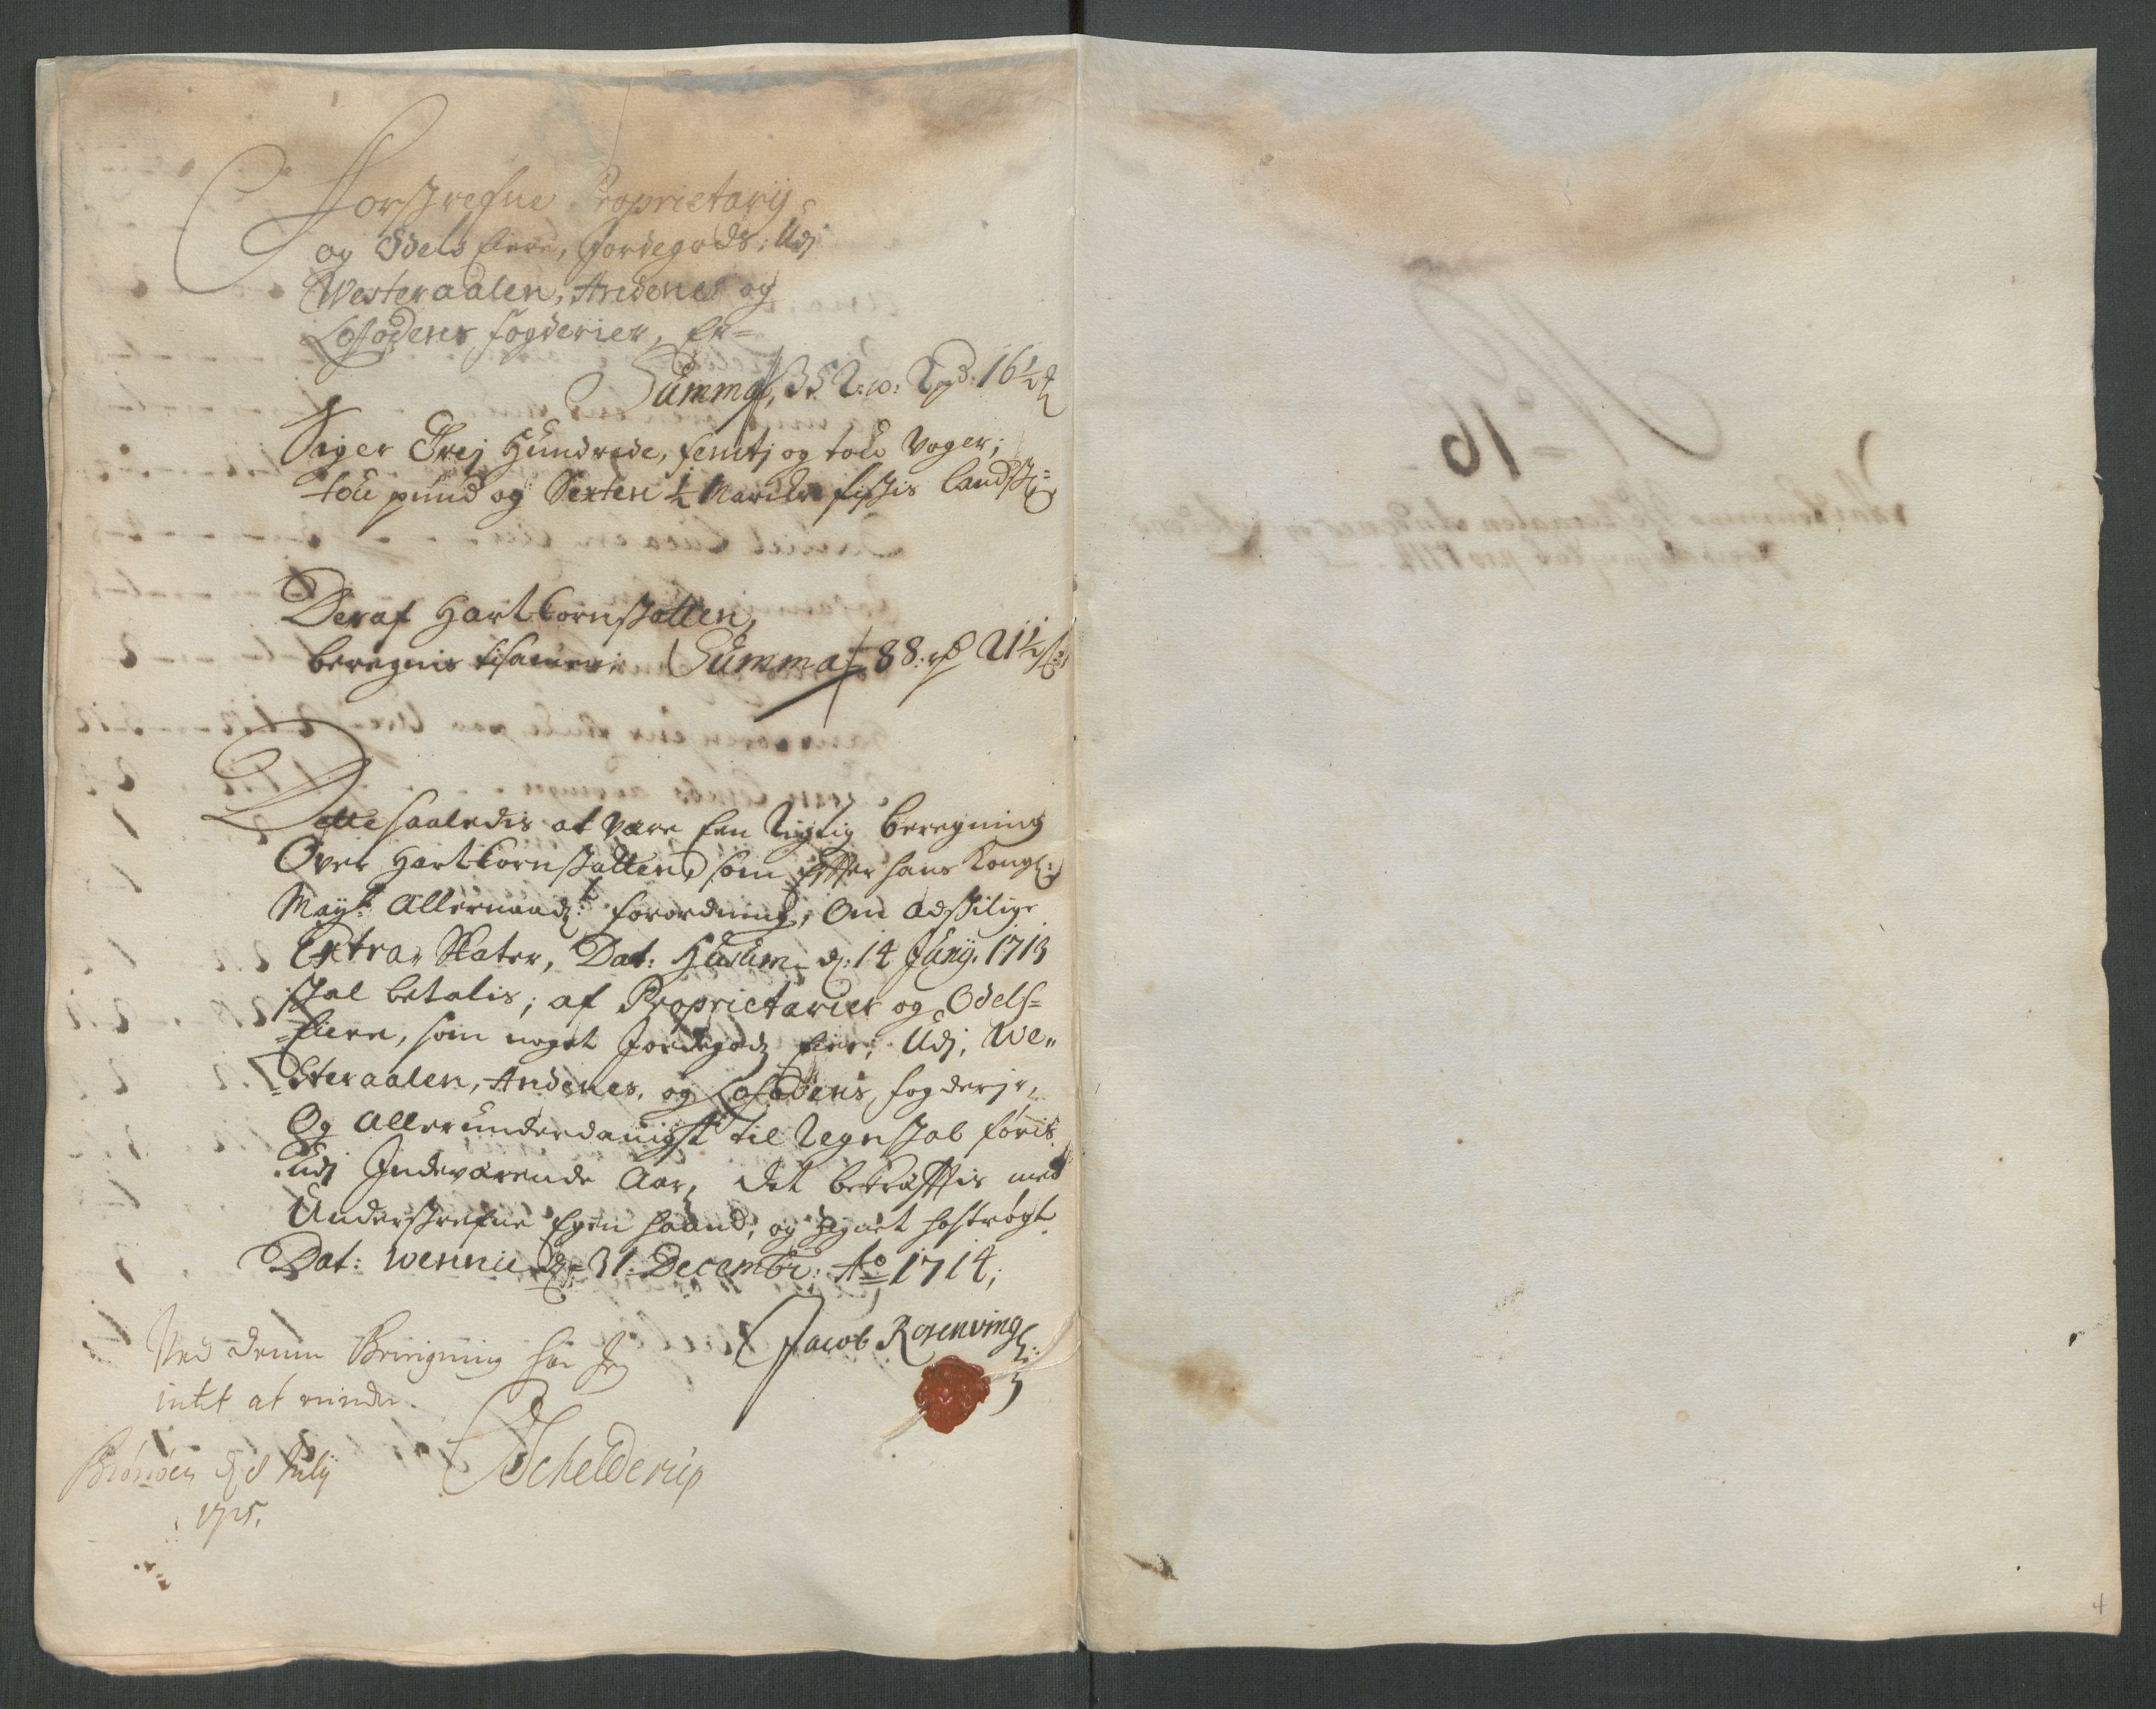 Forskrefne Proprietarij
og Odels Eiere, Jordegods, Udj
Westeraalen, Andenes og
Lofodens fogderier, Er=
Summa, 352: w: 2 pd: 16½ 
Siger Trej Hundrede, femtj og toe Voger;
toe pund og Sexten ½ Marcker fiskis landsk:
Deraf Hartkornskatten,
beregnis tilsamen Summa 88: rd 21½ s:
Dette saaledis at være Een Rigtig beregning
Over Hartkornskatten, som efter hans Kongl:
Mayts: Allernaad: forordning, Om adskilige
Extra Skater, Dat: Husum d: 14 Junij. 1713
skal betalis; af Proprietarier og Odels=
=Eiere, som noget Jordegods Eier, Udj, We„
steraalen, Andenes, og Lofodens, fogderjr,
Og Allerunderdanigst til Regnskab føris
udj Indeværende Aar, det bekræfftis med
Underskrefne Egen haand, og Zignet hoströgt.
Dat: Wennie d: 31: Decembr: Ao 1714;
Jacob Rosenving
Ved denne Beregning har Jeg
intet at minde.
d: 8 July
1715.
Schelderup
No 16
4